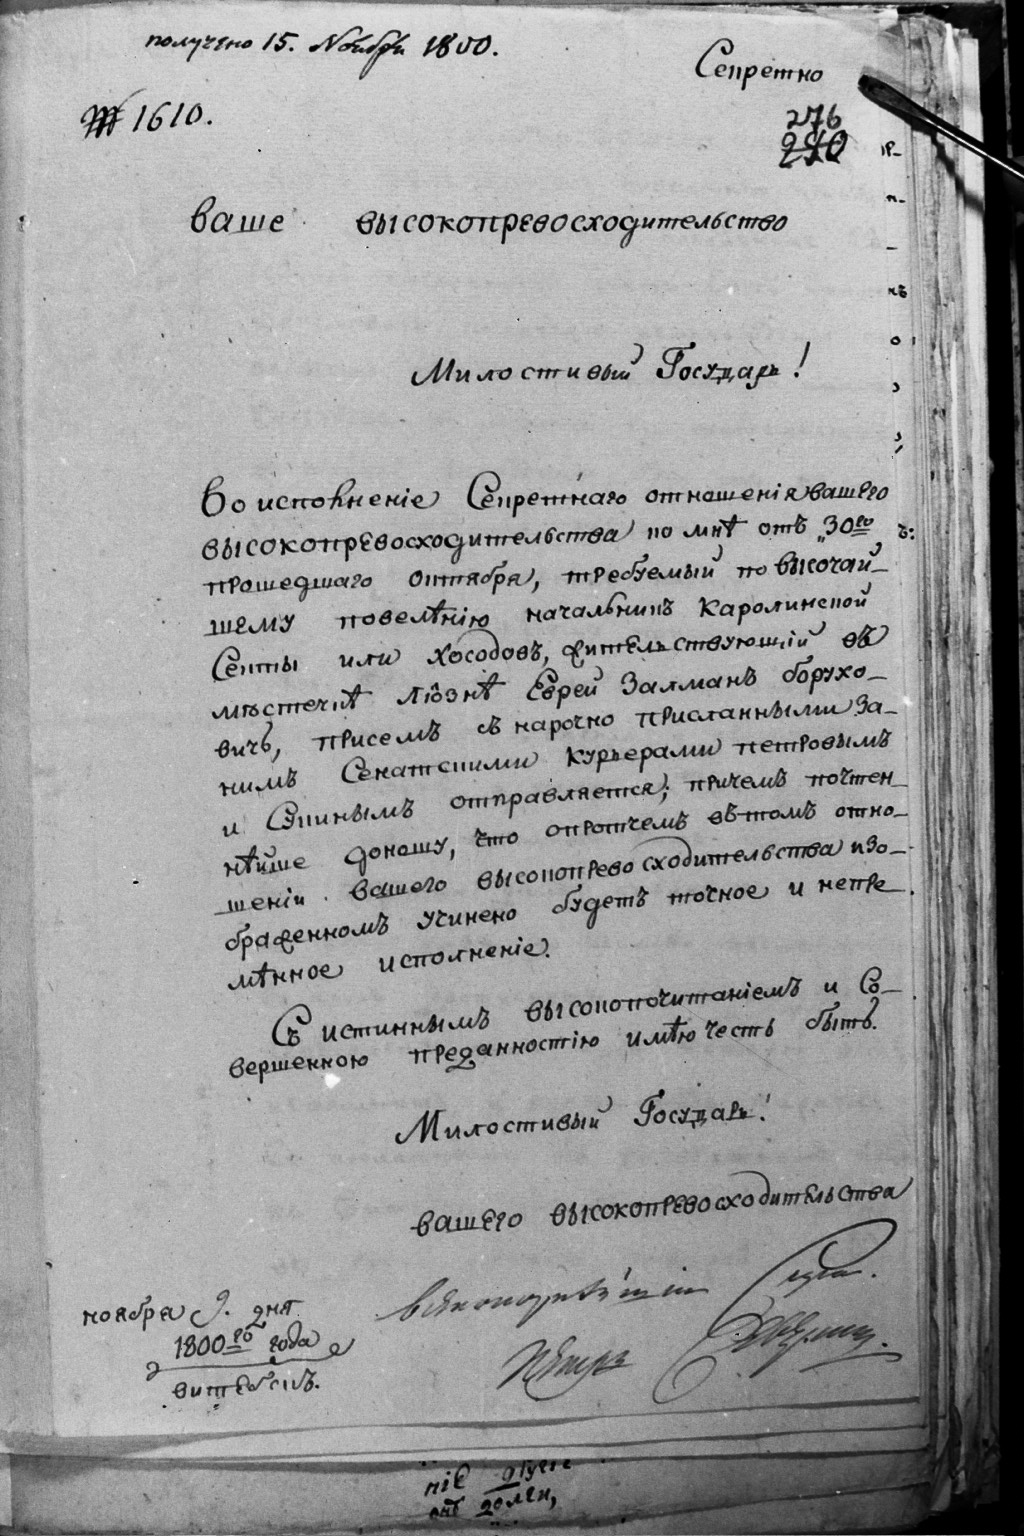 получено 15. Ноября 1800.
Секретно
№ 1610.
276
ваше высокопревосходительство
Милостивый Государь!
Во исполненіе Секретнаго отношенія вашего
высокопревосходительства ко мнѣ отъ „30го
прошедшаго октября, требуемый по высочай-
шему повелѣнію начальникъ Каролинской
Секты или Хосодовъ, жительствующій въ
мѣстечкѣ Лiознѣ Еврей Залманъ борухо-
вичь, при семъ съ нарочно присланными за
нимъ Сенатскими курьерами петровымъ
и отправляется; причемъ почтен-
нѣйше доношу, что опротчемъ въ томъ отно-
шеніи вашего высокопревосходительства изо-
браженномъ учинено будетъ точное и непре
мѣнное исполненіе.
Съ истиннымъ высокопочитаніемъ и Со-
вершенною преданностію имѣю честь быть.
Милостивый Государь!
вашего высокопревосходительства
всепокорнѣйшій Слуга.
Петръ
ноября 9. дня
1800го года
витебскъ.